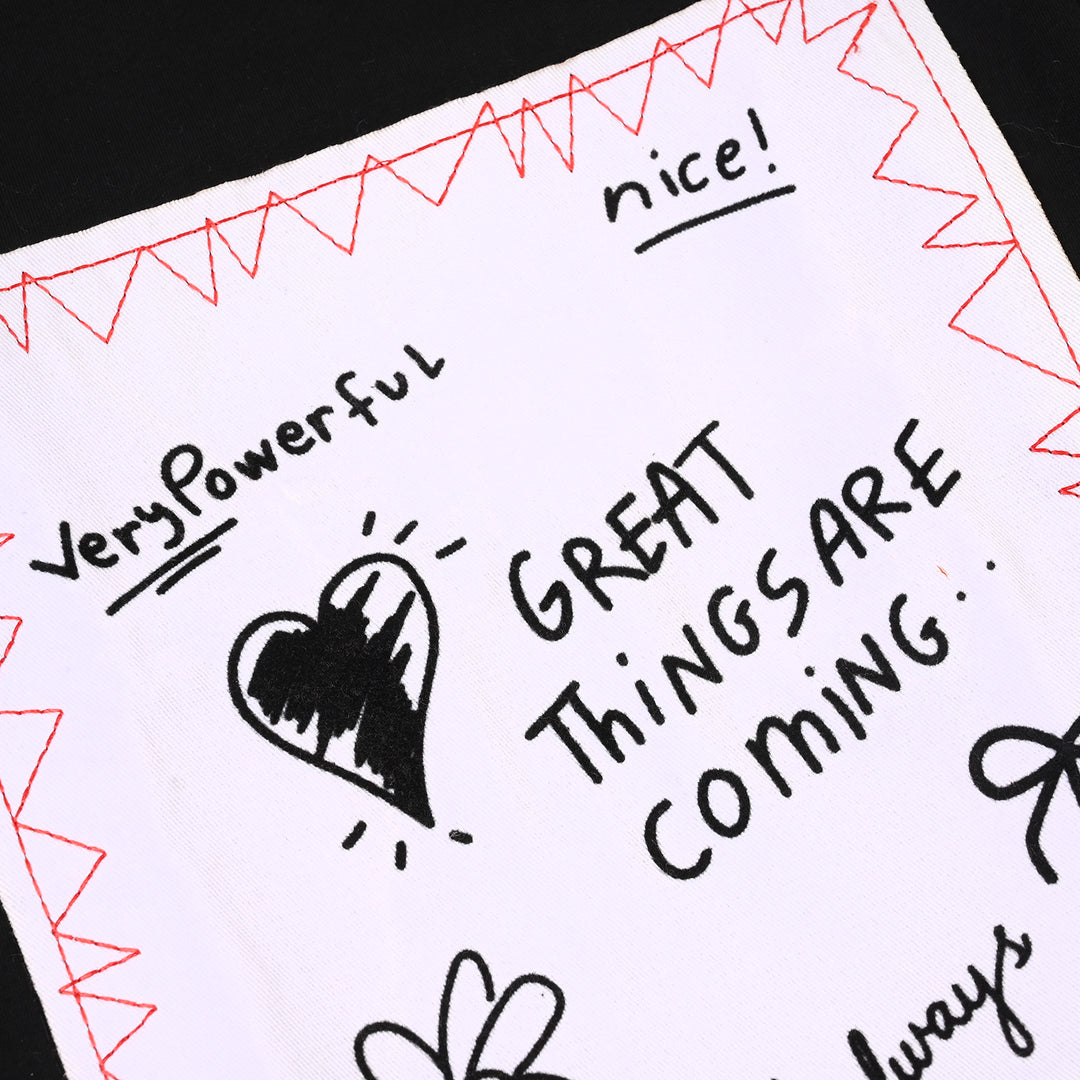 nice!
veryPowerful
GREAT
ThiNGS ARE
COMiNG..
lways